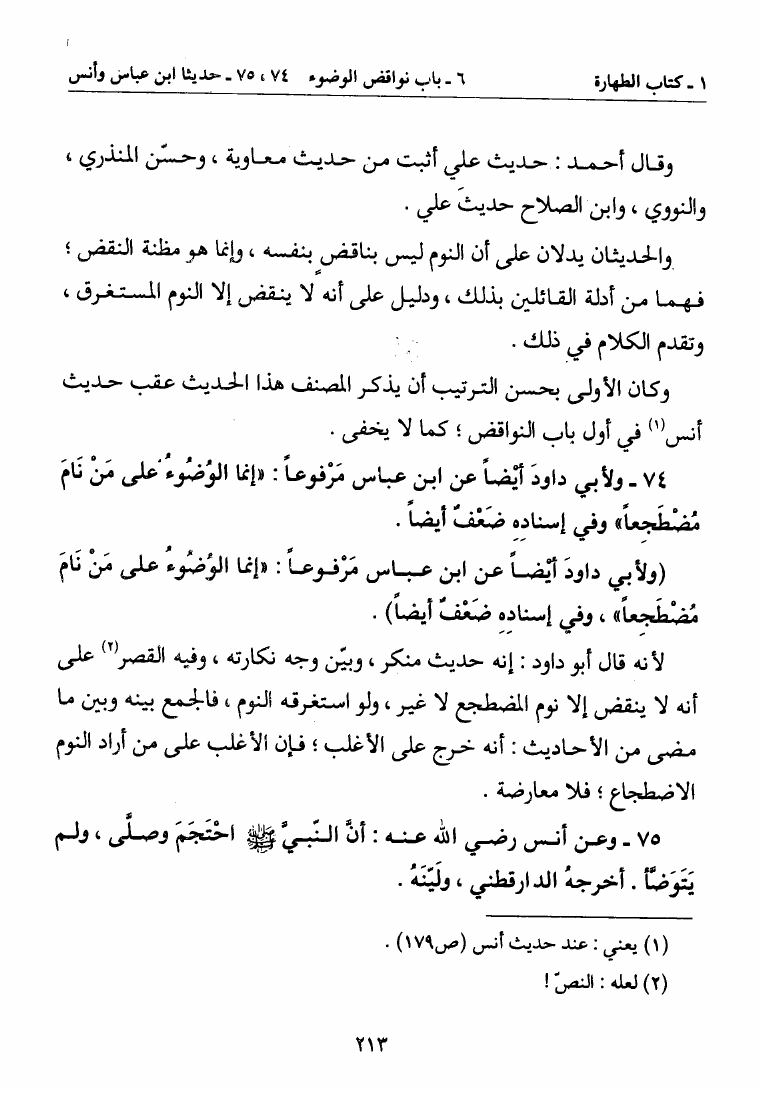 ١ ـ كتاب الطهارة ٦ ـ باب نواقض الوضوء ٧٤ ، ٧٥ ـ حديثا ابن عباس وأنس
وقال أحمد : حديث علي أثبت من حديث معاوية ، وحسّن المنذري ،
والنووي ، وابن الصلاح حديثَ علي .
والحديثان يدلان على أن النوم ليس بناقضٍ بنفسه ، وإنما هو مظنة النقض ؛
فهما من أدلة القائلين بذلك ، ودليل على أنه لا ينقض إلا النوم المستغرق ،
وتقدم الكلام في ذلك .
وكان الأولى بحسن الترتيب أن يذكر المصنف هذا الحديث عقب حديث
أنس(١) في أول باب النواقض ؛ كما لا يخفى .
٧٤ ـ ولأبي داودَ أيْضاً عن ابن عباس مَرْفوعاً : «إنما الوُضُوءُ على مَنْ نَامَ
مُضْطَجِعاً» وفي إسنادِهِ ضَعْفٌ أيضاً .
(ولأبي داودَ أيْضاً عن ابن عباس مَرْفوعاً : «إنما الوُضُوءُ على مَنْ نَامَ
مُضْطَجِعاً» ، وفي إسنادِهِ ضَعْفٌ أيضاً) .
لأنه قال أبو داود : إنه حديث منكر ، وبيّن وجه نكارته ، وفيه القصر(٢) على
أنه لا ينقض إلا نوم المضطجع لا غير ، ولو استغرقه النوم ، فالجمع بينه وبين ما
مضى من الأحاديث : أنه خرج على الأغلب ؛ فإن الأغلب على من أراد النوم
الاضطجاع ؛ فلا معارضة .
٧٥ ـ وعن أنس رضي الله عنه : أنَّ النّبيَّ ﷺ احْتَجَمَ وصلَّى ، ولم
يَتَوَضَّأ . أخرجهُ الدارقطني ، ولَيّنَهُ .
(١) يعني : عند حديث أنس (ص١٧٩) .
(٢) لعله : النصّ !
٢١٣